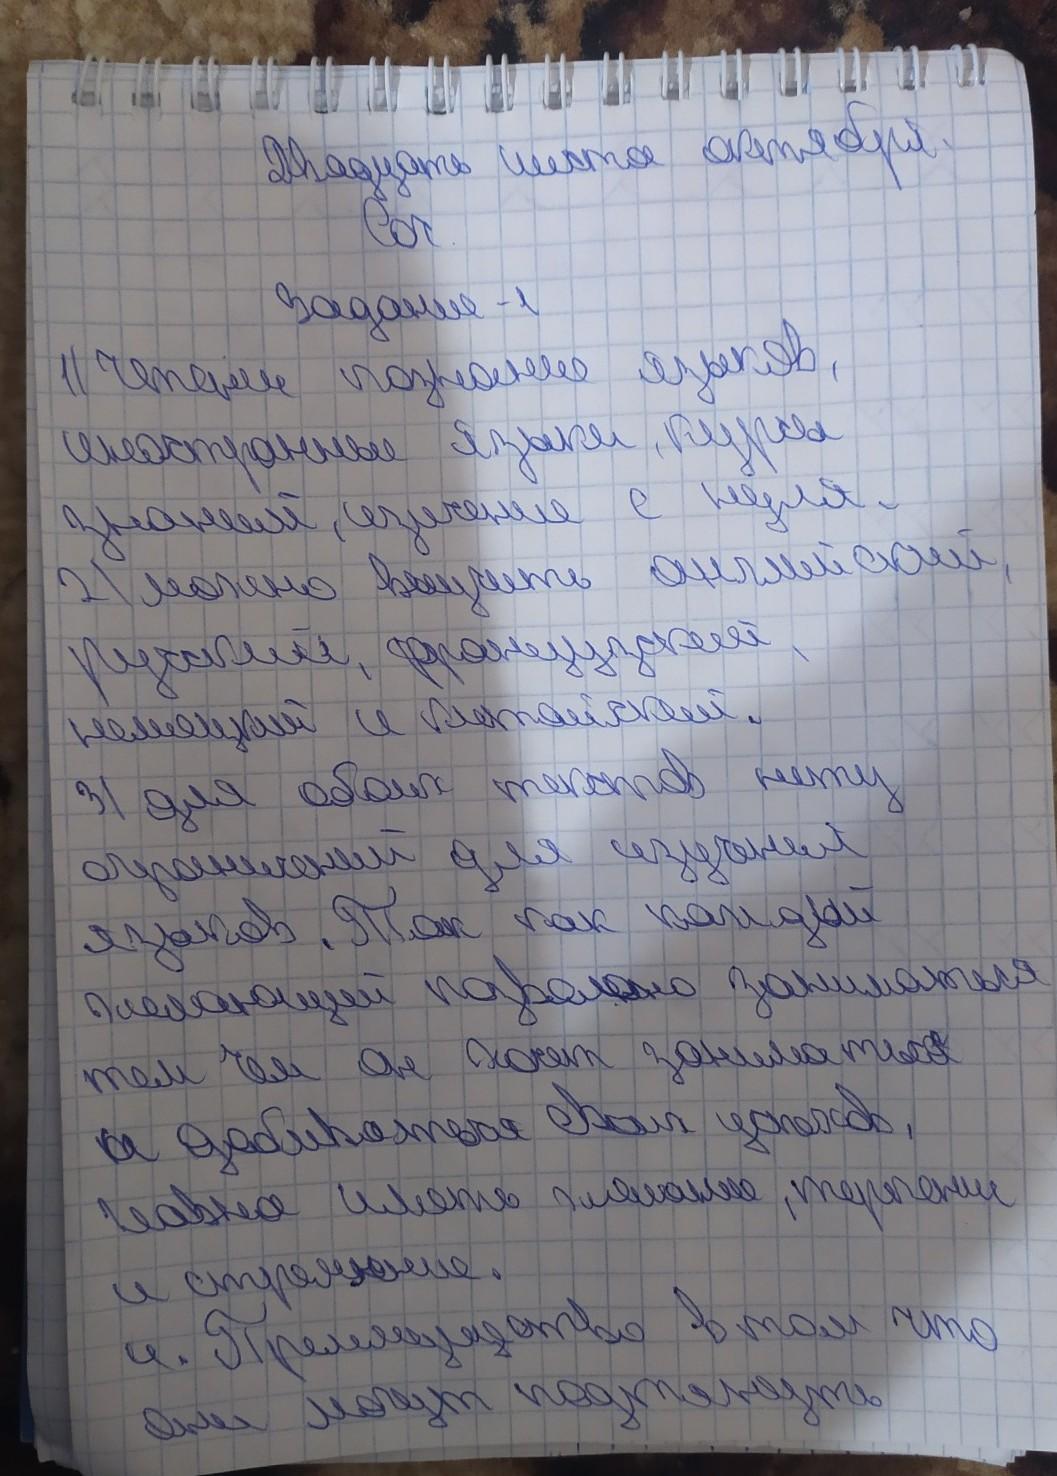 Двадцать шестое октября.
Соч.
Задание -1
1) познание языков,
иностранные языки, курсы
знаний, изучение с нуля.
2) можно выучить английский,
русский, французский,
немецкий и китайский.
3) для обоих текстов нету
ограничений для изучений
языков. Так как каждый
желающий позволено заниматься
тем чем он хочет заниматься
и добиваться своих успехов,
главное иметь желание, терпение
и стремление.
4. Преимущество в том что
они могут подтянуть